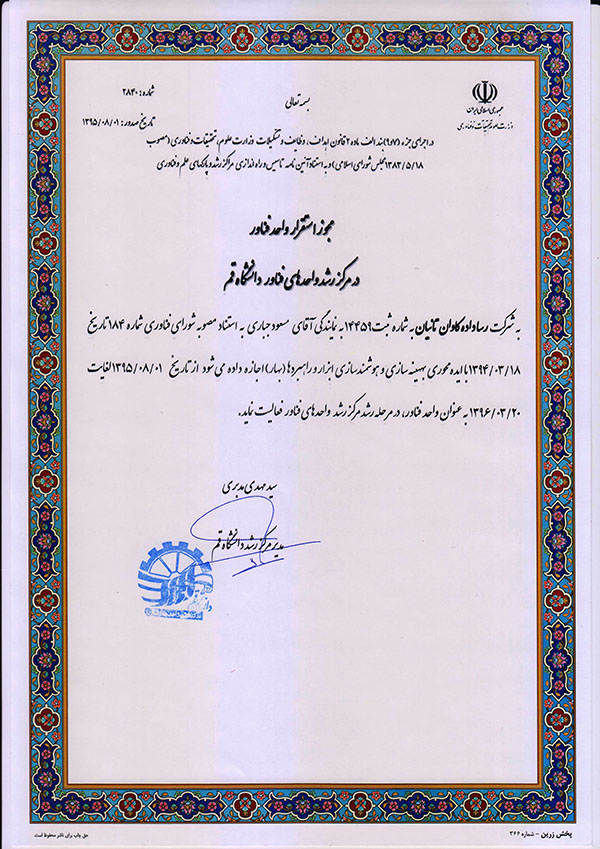 بسمه تعالی
جمهوری اسلامی ایران
وزارت علوم، تحقیقات و فناوری
شماره: ۲۸۴۰
تاریخ صدور: ۱۳۹۵/۰۸/۰۱
در اجرای جزء (۷و۹) بند الف ماده ۲ قانون اهداف، وظایف و تشکیلات وزارت علوم، تحقیقات و فناوری (مصوب
۱۳۸۳/۵/۱۸ مجلس شورای اسلامی) و به استناد آئین نامه تاسیس و راه اندازی مراکز رشد و پارکهای علم و فناوری
مجوز استقرار واحد فناور
در مرکز رشد واحدهای فناور دانشگاه قم
به شرکت رسا داده کاوان تائیان به شماره ثبت ۱۴۴۵۹ به نمایندگی آقای مسعود جباری به استناد مصوبه شورای فناوری شماره ۱۸۴ تاریخ
۱۳۹۴/۰۳/۱۸ با ایده محوری بهینه سازی و هوشمند سازی ابزار و راهبردها (بهار) اجازه داده می شود از تاریخ ۱۳۹۵/۰۸/۰۱ لغایت
۱۳۹۶/۰۳/۲۰ به عنوان واحد فناور، در مرحله رشد مرکز رشد واحدهای فناور فعالیت نماید.
سید مهدی مدبری
مدیر مرکز رشد دانشگاه قم
پخش زرین - شماره ۳۶۶
حق چاپ برای ناشر محفوظ است.